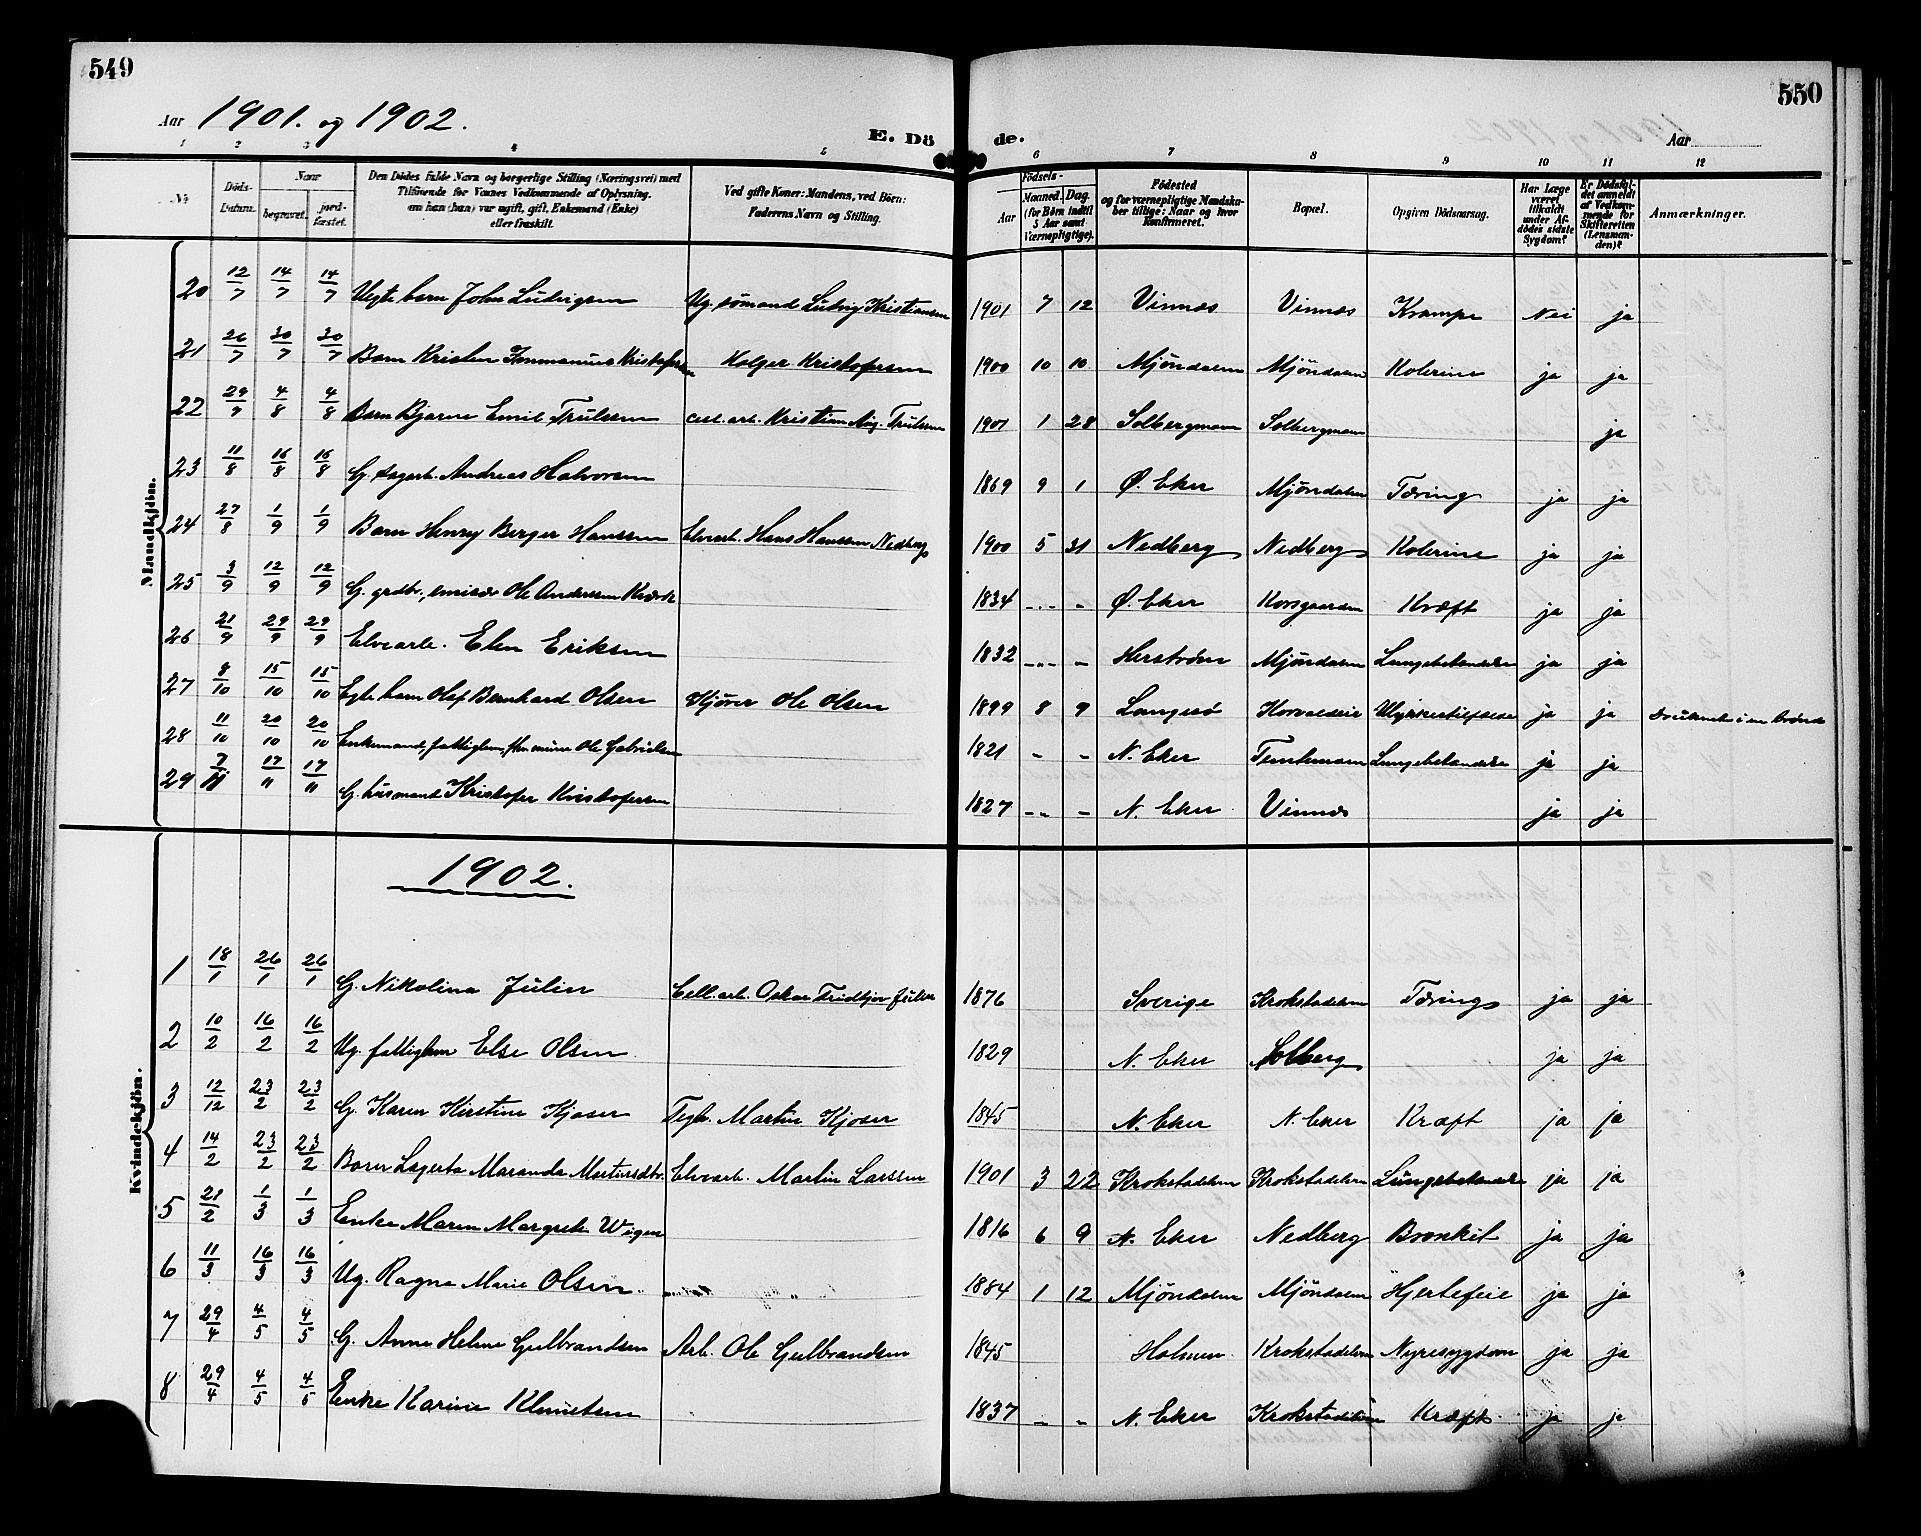 549
550
Aar 1901. og 1902.
E. Dö
de.
Aar
1 2 3 4 5 6 7 8 9 10 11 12
Nr
Döds-Datum.
Naar
begravet.
jordfæstet.
Den Dödes fulde Navn og borgerlige Stilling (Næringsvei) med
Tilföiende for Voxnes Vedkommende af Oplysning,
om han (hun) var ugift, gift, Enkemand (Enke)
eller fraskilt.
Ved gifte Koner: Mandens, ved Börn:
Faderens Navn og Stilling.
Födsels-
Aar
Maaned. Dag.
(for Börn indtil 5 Aar samt Værnepligtige).
Födested
og for værnepligtige Mandskaber tillige: Naar og hvor Konfirmeret.
Bopæl.
Opgiven Dödsaarsag.
Har Læge været tilkaldt under Afdödes sidste Sygdom?
Er Dödsfaldet anmeldt af Vedkommende for Skifteretten (Lensmanden)?
Anmærkninger.
Mandkjön.
20 12/7 14/7 14/7 Uegte barn John Ludvigsen Ug. sømand Ludvig Kristiansen 1901 7 12 Vinnæs Vinnæs Krampe Nei ja
21 26/7 30/7 30/7 Barn Kristen Immanuel Kristofersen Holger Kristofersen 1900 10 10 Mjöndalen Mjöndalen Kolerine ja ja
22 29/7 4/8 4/8 Barn Bjarne Emil Trulssen cell. arb. Kristian Aug. Trulssen 1901 1 28 Solbergmoen Solbergmoen ja
23 11/8 16/8 16/8 G. sagarb. Andreas Halvorsen 1869 9 1 Ø. Eker Mjöndalen Tæring ja ja
24 27/8 1/9 1/9 Barn Henry Berger Hanssen Elvearb. Hans Hanssen Nedberg 1900 5 31 Nedberg Nedberg Kolerine ja ja
25 3/9 12/9 12/9 G. grdbr., Ole Anderssen 1834 - - Ø. Eker Korsgaarden Kræft ja ja
26 21/9 29/9 29/9 Elvearb. Elen Eriksen 1832 - - Herstrøm Mjöndalen Lungebetændelse ja ja
27 8/10 15/10 15/10 Egte barn Olaf Bernhard Olsen Kjører Ole Olsen 1899 8 9 Langesö Horvaldeie Ulykkestilfælde ja ja Druknede i en brönd
28 11/10 20/10 20/10 Enkemand, fattiglem, Ole Gabrielsen 1821 - - N. Eker Temtemoen Lungebetændelse ja ja
29 7/11 17/11 17/11 G. husmand Kristofer Kristofersen 1827 - - N. Eker Vinnæs ja ja
1902.
Kvindekjön.
1 18/1 26/1 26/1 G. Nikolina Julin Cell. arb. Oskar Fridtjov Julin 1876 Sverige Krokstadelven Tæring ja ja
2 10/2 16/2 16/2 Ug. fattiglem Else Olsen 1829 N. Eker Solberg ja ja
3 12/12 23/2 23/2 G. Karen Kirstine Kjøser Teglv. Martin Kjøser 1845 N. Eker N. Eker Kræft ja ja
4 14/2 23/2 23/2 Barn Lagerta Maranda Martinsdtr. Elvearb. Martin Larssen 1901 3 22 Krokstadelven Krokstadelven Lungebetændelse ja ja
5 21/2 1/3 1/3 Enke Maren Margrete Wiger 1816 6 9 N. Eker Nedberg Bronkit ja ja
6 11/3 16/3 16/3 Ug. Ragna Marie Olsen 1884 1 12 Mjöndalen Mjöndalen Hjertefeil ja ja
7 29/4 4/5 4/5 G. Anne Helene Gulbrandsen Arb. Ole Gulbrandsen 1845 Holmen Krokstadelven Nyresygdom ja ja
8 29/4 4/5 4/5 Enke Karine Klemetsen 1837 - - N. Eker Krokstadelven Kræft ja ja